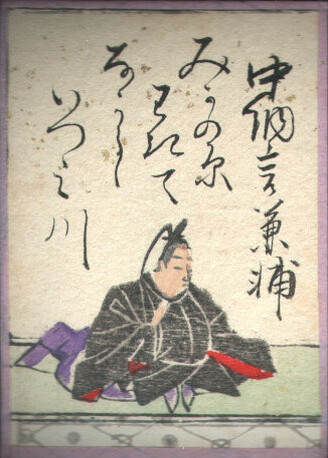 中納言兼輔
みかの原
わきて
なかるゝ
いつみ川